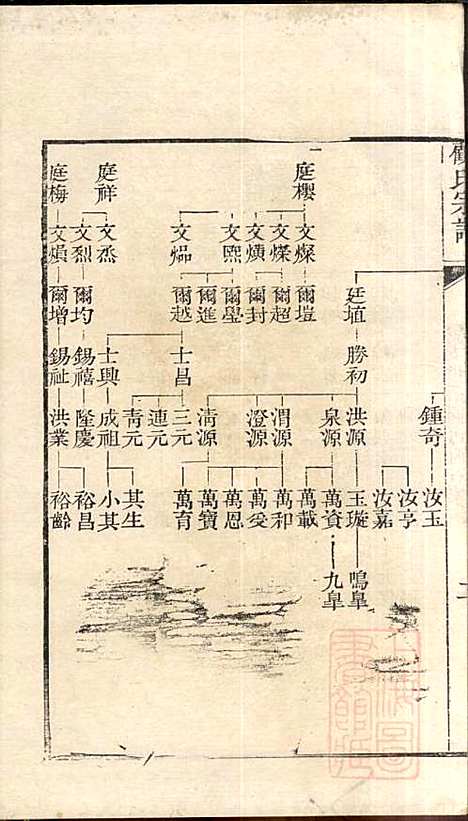 氏宗譜
二
庭櫻 庭祥 庭梅
文燦 文燦 文熿 文熈 文㷍 文烝 文烈 文熉
廷埴 爾塏 爾超 爾封 爾璺 爾進 爾越 爾圴 爾增
勝初 士昌 士興 錫禧 錫祉
鍾奇 洪源 泉源 渭源 澄源 淸源 三元 連元 靑元 成祖 隆慶 洪業
汝玉 汝亨 汝嘉 玉璇 萬資 萬載 萬和 萬受 萬恩 萬寶 萬育 其生 小其 裕昌 裕齡
鳴皐 九皐
上海圖書館藏